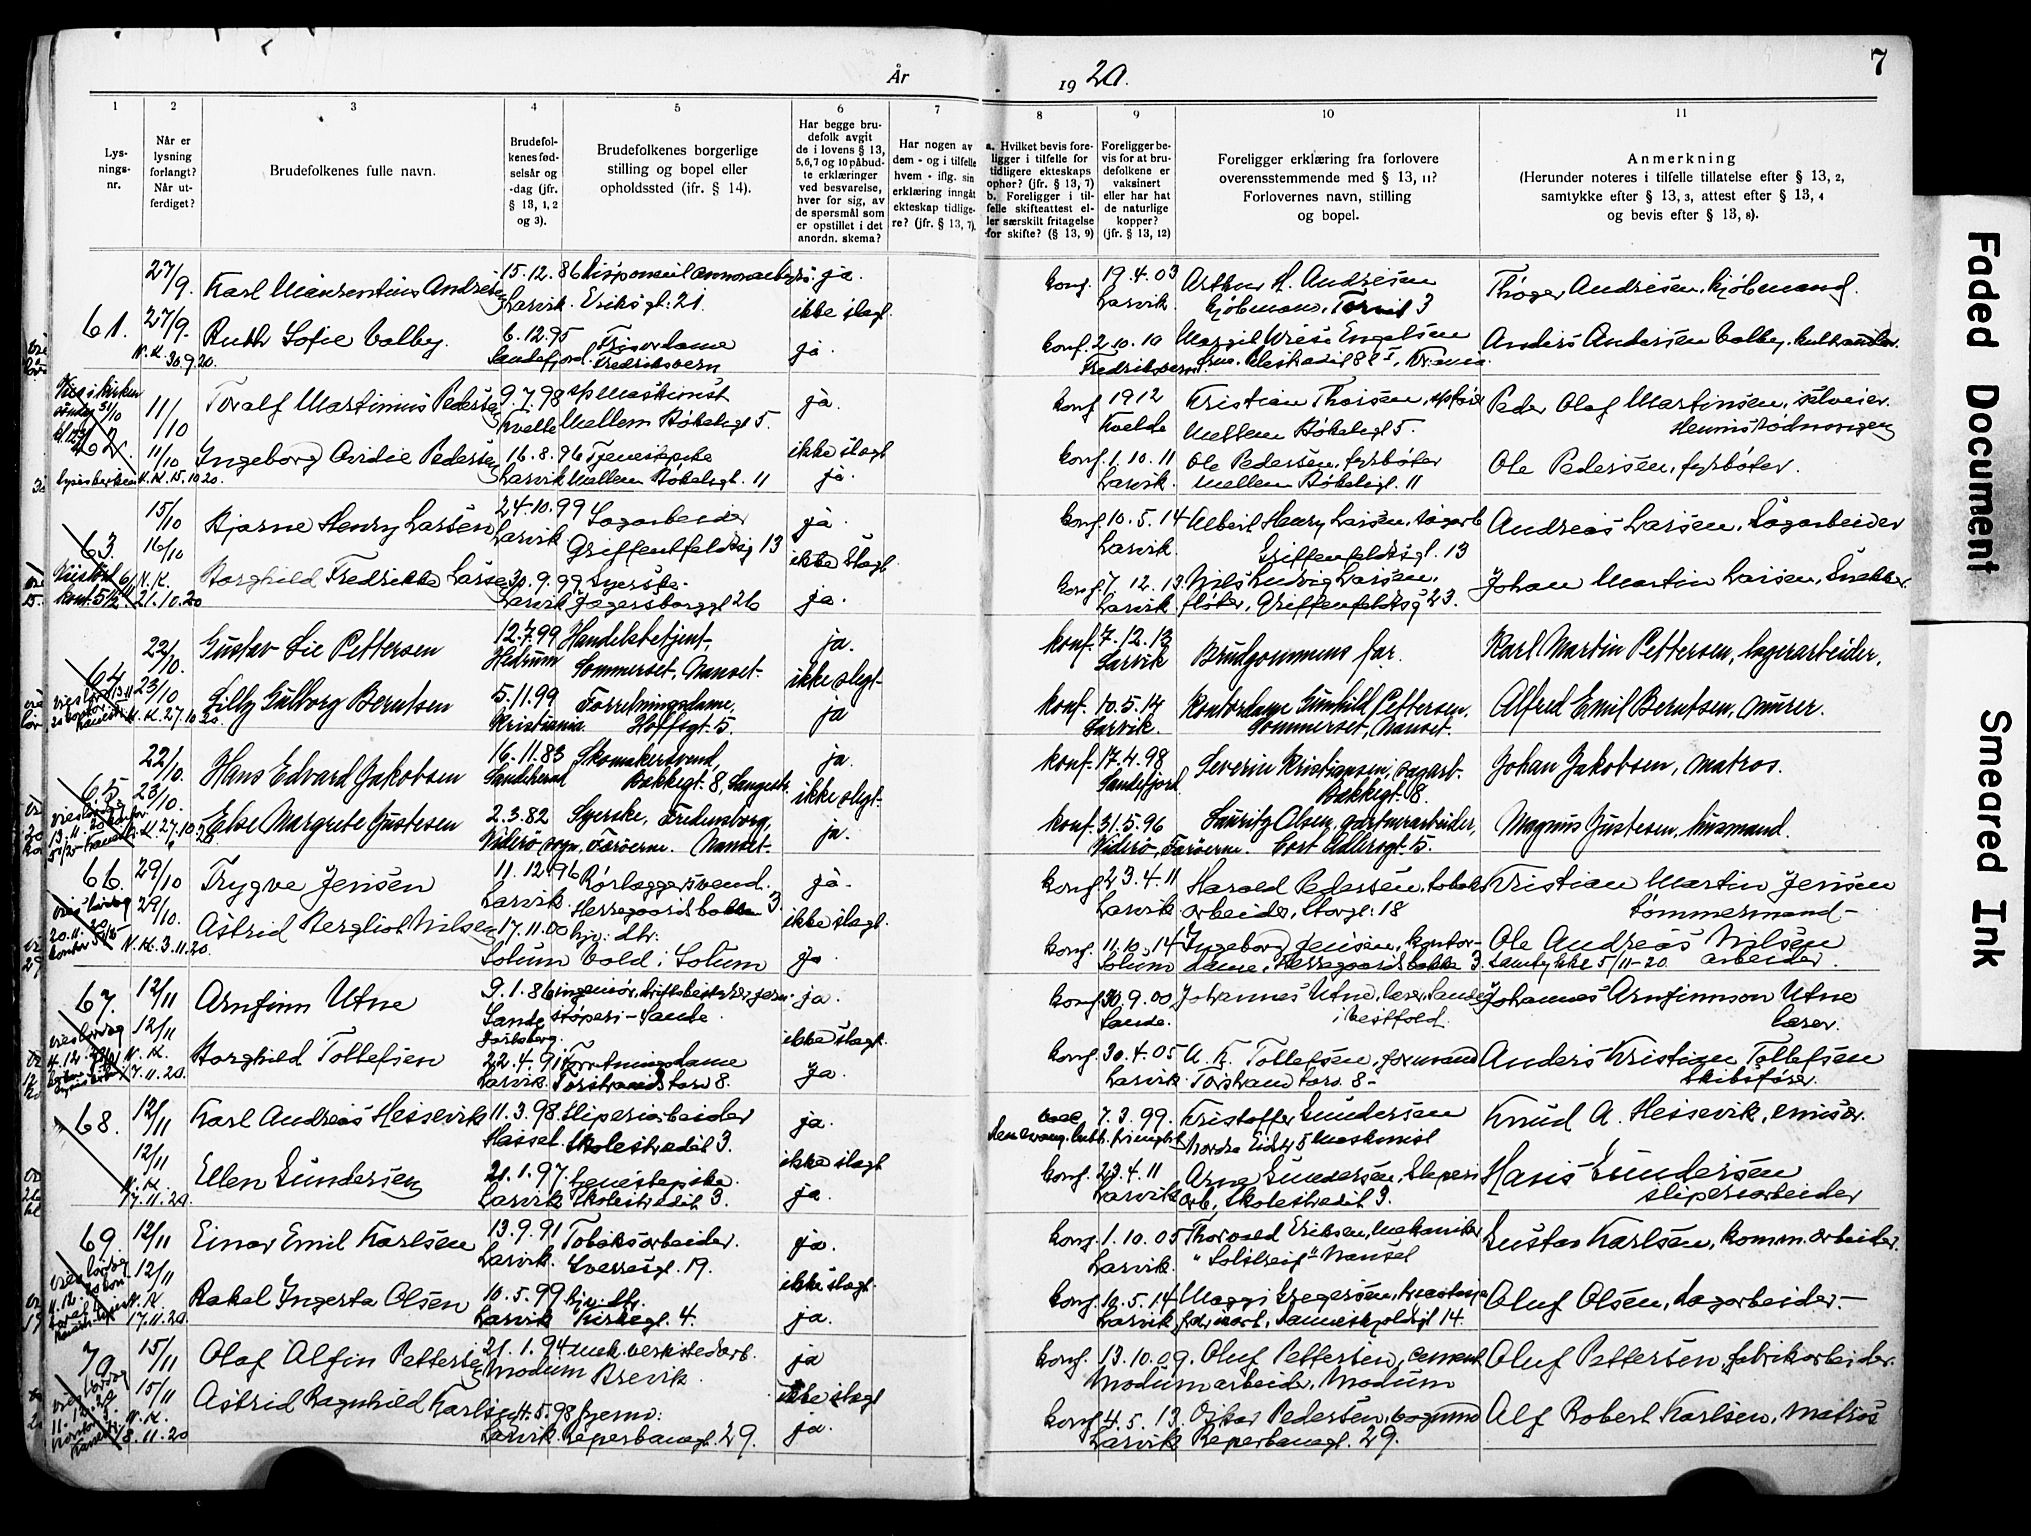 År 1920.
7
1 2 3 4 5 6 7 8 9 10 11
Lys-
nings-
nr.
Når er
lysning
forlangt?
Når ut-
ferdiget?
Brudefolkenes fulle navn.
Brudefol-
kenes fød-
selsår og
-dag (jfr.
§ 13, 1, 2
og 3).
Brudefolkenes borgerlige
stilling og bopel eller
opholdssted (jfr. § 14).
Har begge bru-
defolk avgit
de i lovens § 13,
5, 6, 7 og 10 påbud-
te erklæringer
ved besvarelse,
hver for sig, av
de spørsmål som
er opstillet i det
anordn. skema?
Har nogen av
dem - og i tilfelle
hvem - iflg. sin
erklæring inngått
ekteskap tidlige-
re? (jfr. § 13, 7).
a. Hvilket bevis fore-
ligger i tilfelle for
tidligere ekteskaps
ophør? (jfr. § 13, 7)
b. Foreligger i til-
felle skifteattest el-
ler særskilt fritagelse
for skifte? (§ 13, 9)
Foreligger be-
vis for at bru-
defolkene er
vaksinert
eller har hat
de naturlige
kopper?
(jfr. § 13, 12)
Foreligger erklæring fra forlovere
overensstemmende med § 13, 11?
Forlovernes navn, stilling
og bopel.
Anmerkning
(Herunder noteres i tilfelle tillatelse efter § 13, 2,
samtykke efter § 13, 3, attest efter § 13, 4
og bevis efter § 13, 8).
27/9. Karl Andresen 15.12.86 ja. konf. 19.4.03 Arthur H. Andresen Thøger Andresen, kjøbmand.
Larvik. Eriksgt. 21. ikke slegt. Larvik kjøbmann, Torvet 3
61. 27/9. Ruth Sofie Valby 6.12.95 Frisørdame ja. konf. 2.10.10 Engelsen Anders Andersen Valby, kulhandler.
N.K. 30.9.20. Sandefjord. Fredriksvern Fredriksvern
11/10 Toralf Martinius Pedersen 9.7.98 Maskinist ja. konf. 1912 Kristian Thorsen, Peder Olaf Martinsen, selveier.
62. Kvelle Mellem Bøkeligt 5. Kvelde Mellem Bøkeligt 5.
11/10 Ingeborg Ovidie Pedersen 16.8.96 Tjenestepike ikke slegt konf. 1.10.11 Ole Pedersen, fyrbøter Ole Pedersen, fyrbøter.
N.K. 15.10.20. Larvik Mellem Bøkeligt. 11 ja. Larvik. Mellem Bøkeligt. 11
15/10 Bjarne Henry Larsen 24.10.99 Sagarbeider ja. konf. 10.5.14 Albert Henry Larsen, sagarb. Andreas Larsen, Sagarbeider
63. 16/10 Larvik. Griffenfeldtsg 13 ikke slegt. Larvik. Griffenfeldtsgt. 13
Borghild Fredrikke Larsen 30.9.99 Syerske. konf. 7.12.13 Nils Ludvig Larsen, Johan Martin Larsen, Snekker
N.K. 21.10.20 Larvik Jegersborggt 26 ja. Larvik. fløter, Griffenfeldtsg 23.
22/10. Gustav Lie Pettersen 12.7.99 Handelsbetjent, ja. konf. 7.12.13 Brudgommens far. Karl Martin Pettersen, lagerarbeider.
64 Hedrum Sommerset, Nanset. ikke slegt. Larvik
23/10 Lilly Gulborg Berntsen 5.11.99 Forretningsdame, ja konf. 10.5.14 Kontordame Gunhild Pettersen. Alfred Emil Berntsen, murer.
N.K. 27.10.20. Kristiania Hoffsgt. 5. Larvik. Sommerset, Nanset.
22/10. Hans Edvard Jakobsen 16.11.83 Skomakersvend, ja. konf. 17.4.98 Severin Kristiansen, sagarb. Johan Jakobsen, matros.
65. Sandeherred Bakkegt. 8, Langestr. ikke slegt. Sandefjord Bakkegt. 8.
23/10. Else Margrete Justesen 2.3.82 Syerske, Fredensborg, ja. konf. 31.5.96 Lauritz Olsen, gartnerarbeider, Magnus Justesen, husmand.
N.K. 27.10.20 Viderø, sogn, Færøerne. Nanset. Viderø, Færøerne. Cort Adlersgt. 5.
66. 29/10 Trygve Jensen 11.12.96 Rørlæggersvend. ja. konf. 23.4.11 Harald Pedersen, tobaks Kristian Martin Jensen
Larvik. Herregaardsbakken 3. Larvik arbeider, Storgt. 18 tømmermand -
29/10. Astrid Bergliot Nilsen 17.11.00 hjv. dtr. ikke slegt. konf. 11.10.14 Ingeborg Jensen, kontor- Ole Andreas Nilsen
N.K. 3.11.20. Solum Vold i Solum ja. Solum dame, Herregaardsbakke 3. Samtykke 5/11-20. arbeider.
67. 12/11 Arnfinn Utne 9.1.86 ingeniør, driftsbestyrer jern- ja. konf. 30.9.00 Johannes Utne, lærer, Sande Johannes Arnfinnson Utne
Sande støperi - Sande. Sande. i Vestfold. lærer.
12/11 Jarlsberg. ikke slegt.
N.K. 17.11.20. Borghild Tollefsen 22.4.91 Forretningsdame ja. konf. 30.4.05 A. K. Tollefsen, formand Anders Kristian Tollefsen
Larvik. Torstrand torv 8. Larvik Torstrand torv. 8 - skibsfører.
68. 12/11 Karl Andreas Hessevik 11.3.98. sliperiarbeider ja. 7.3.99. Kristoffer Gundersen Knud A. Hessevik, emisær.
Hassel. Skolestrædet 3. maskinist
12/11 Ellen Gundersen 21.1.97. tjenestepike ikke slegt konf. 23.4.11 Arne Gundersen, Sliperi Hans Gundersen
N.K. 17.11.20. Larvik. Skolestrædet 3. ja. Larvik arb., Skolestrædet 3. sliperiarbeider
69 12/11 Einar Emil Karlsen 13.9.91 Tobaksarbeider. ja. konf. 1.10.05 Thorvald Eriksen, mekaniker Gustav Karlsen, komm. arbeider.
Larvik. Sverresgt. 19. Larvik. "Solstreif" Nanset
12/11 Rakel Ingerta Olsen 10.5.99 hjv. dtr. ikke slegt. konf. 10.5.14 Maggi Gregersen, Oluf Olsen, dagarbeider. -
N.K. 17.11.20. Larvik Kirkegt. 4. ja. Larvik
70 15/11 Olaf Alfin Pettersen 21.1.94 mek. verkstedarb. ja konf. 13.10.09. Oluf Pettersen, cement Oluf Pettersen, fabrikarbeider.
Modum Brevik. Modum arbeider, Modum
15/11 Astrid Ragnhild Karlsen 4.5.98 hjemv. ikke slegt konf. 4.5.13. Oskar Pedersen, Alf Robert Karlsen, Matros
N.K. 18.11.20 Larvik. Reperbanegt. 29. ja. Larvik Reperbanegt. 29.
Faded Document
Smeared Ink